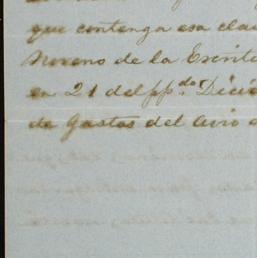 que contenga esa clau
Noveno de la Escrit
en 21 del pp.do Dici
de Gastos del Avio